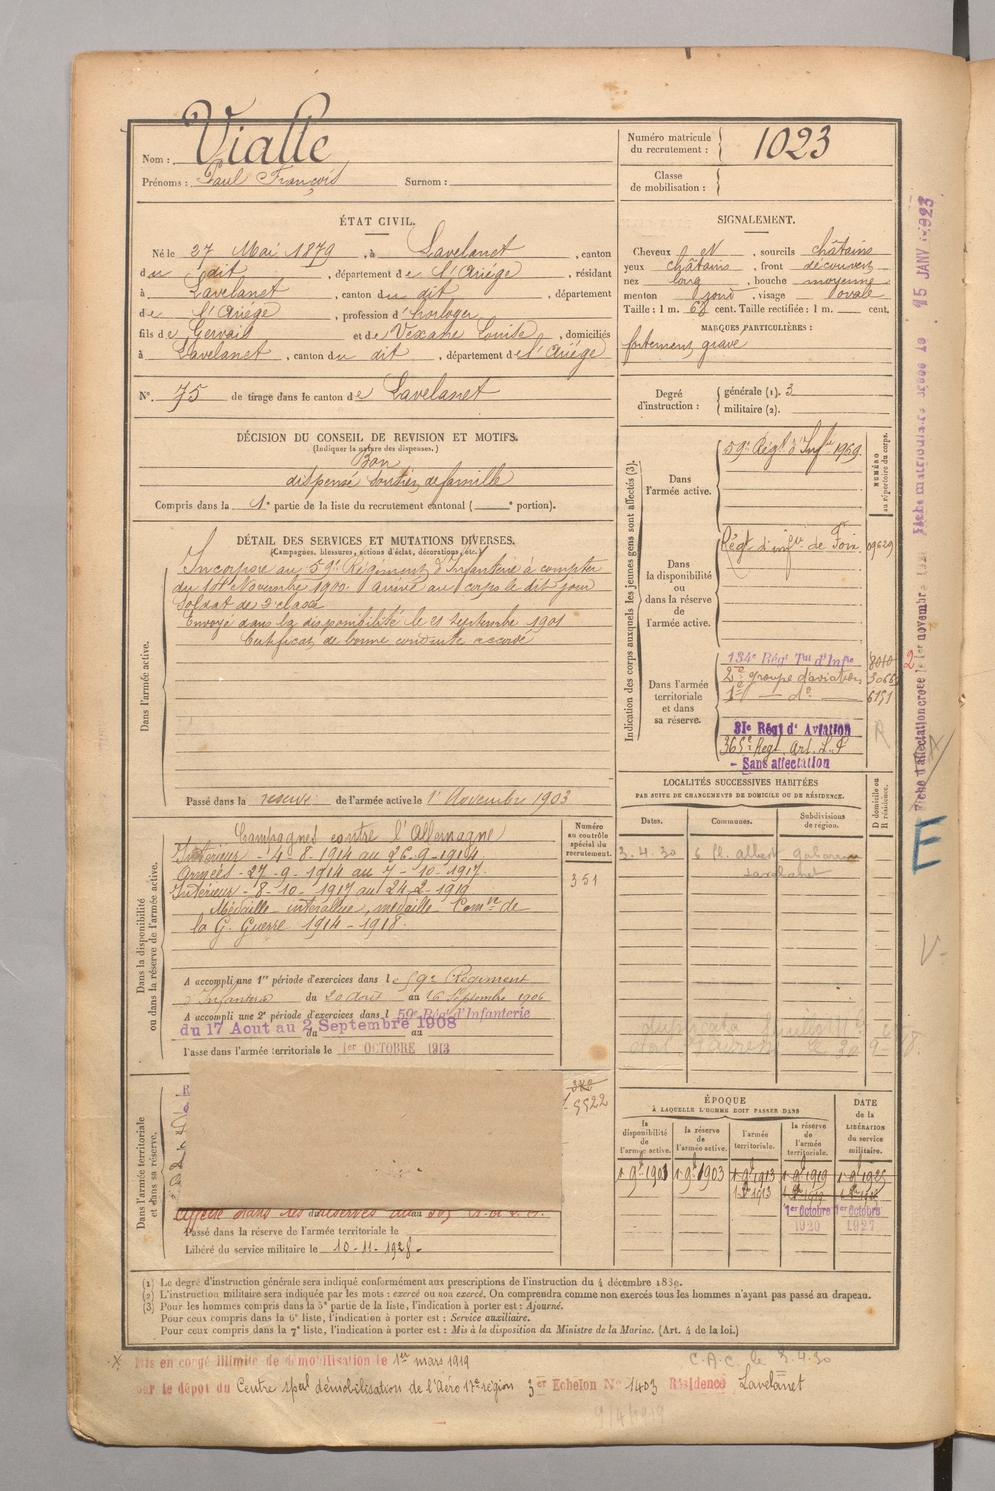 Nom : Vialle
Prénoms : Paul François Surnom :
Numéro matricule du recrutement : 1023
Classe de mobilisation :
ÉTAT CIVIL.
Né le 27 Mai 1879, à Lavelanet, canton
du dit, département de l'Ariège, résidant
à Lavelanet, canton du dit, département
de l'Ariège, profession d'horloger
fils de Gervais et de Vexane Louise, domiciliés
à Lavelanet, canton du dit, département de l'Ariège
N° 75 de tirage dans le canton de Lavelanet
SIGNALEMENT.
Cheveux et, sourcils châtains
yeux châtains, front découvert
nez long, bouche moyenne
menton rond, visage ovale
Taille : 1 m. 68 cent. Taille rectifiée : 1 m. cent.
MARQUES PARTICULIÈRES :
fortement gravé
Degré d'instruction : générale (1). 3
militaire (2).
DÉCISION DU CONSEIL DE REVISION ET MOTIFS.
(Indiquer la nature des dispenses.)
Bon
dispensé soutien de famille
Compris dans la 1e partie de la liste du recrutement cantonal ( e portion).
DÉTAIL DES SERVICES ET MUTATIONS DIVERSES.
(Campagnes, blessures, actions d'éclat, décorations, etc.)
Dans l'armée active.
Incorporé au 59e Régiment d'Infanterie à compter
du Novembre 1900. Arrivé au corps le dit jour
Soldat de 2e classe
Envoyé dans la disponibilité le 21 Septembre 1901
Certificat de bonne conduite accordé
Passé dans la réserve de l'armée active le 1er Novembre 1903
Indication des corps auxquels les jeunes gens sont affectés (3).
NUMÉRO au répertoire du corps.
Dans l'armée active.
59e Régt d'Infie 1969
Dans la disponibilité ou dans la réserve de l'armée active.
Régt d'infie de Foix 09629
Dans l'armée territoriale et dans sa réserve.
134e Régt Tal d'Infie 8010
2e groupe d'aviation 3066
1er — do — 6151
31e Régt d'Aviation
365e Régt Art. L. P
- Sans affectation
R
LOCALITÉS SUCCESSIVES HABITÉES
PAR SUITE DE CHANGEMENTS DE DOMICILE OU DE RÉSIDENCE.
Dates. Communes. Subdivisions de région. D domicile ou R résidence.
3.4.30 6 Pl. albert
Lavelanet
Dans la disponibilité ou dans la réserve de l'armée active.
Campagnes contre l'Allemagne
Intérieur - 4-8-1914 au 26-9-1914
Armées - 27-9-1914 au 7-10-1917
Intérieur - 8-10-1917 au 24-2-1919
Médaille interalliée, médaille Comve de
la G. Guerre 1914-1918.
Numéro au contrôle spécial du recrutement.
351
A accompli une 1re période d'exercices dans le 59e Régiment
d'Infanterie du 20 Aout au 16 Septembre 1906
A accompli une 2e période d'exercices dans l 59e Régt d'Infanterie
du 17 Aout au 2 Septembre 1908
Passé dans l'armée territoriale le 1er OCTOBRE 1913
Dans l'armée territoriale et dans sa réserve.
5522
Passé dans la réserve de l'armée territoriale le
Libéré du service militaire le 10-11-1928.
ÉPOQUE
À LAQUELLE L'HOMME DOIT PASSER DANS
la disponibilité de l'armée active. la réserve de l'armée active. l'armée territoriale. la réserve de l'armée territoriale.
DATE de la LIBÉRATION du service militaire.
1 9bre 1901 1 9bre 1903 1 9bre 1913 1 9bre 1919 1 9bre 1925
1er Octobre 1920
1er Octobre 1927
(1) Le degré d'instruction générale sera indiqué conformément aux prescriptions de l'instruction du 4 décembre 1889.
(2) L'instruction militaire sera indiquée par les mots : exercé ou non exercé. On comprendra comme non exercés tous les hommes n'ayant pas passé au drapeau.
(3) Pour les hommes compris dans la 5e partie de la liste, l'indication à porter est : Ajourné.
Pour ceux compris dans la 6e liste, l'indication à porter est : Service auxiliaire.
Pour ceux compris dans la 7e liste, l'indication à porter est : Mis à la disposition du Ministre de la Marine. (Art. 4 de la loi.)
Mis en congé illimité de démobilisation le 1er mars 1919
par le dépôt du Centre spal démobilisation de l'Aéro 17e région 3er Echelon N° 1403 Résidence Lavelanet
C.A.C. le 3.4.30
Fiche matriculaire 15 JANV 1923
E